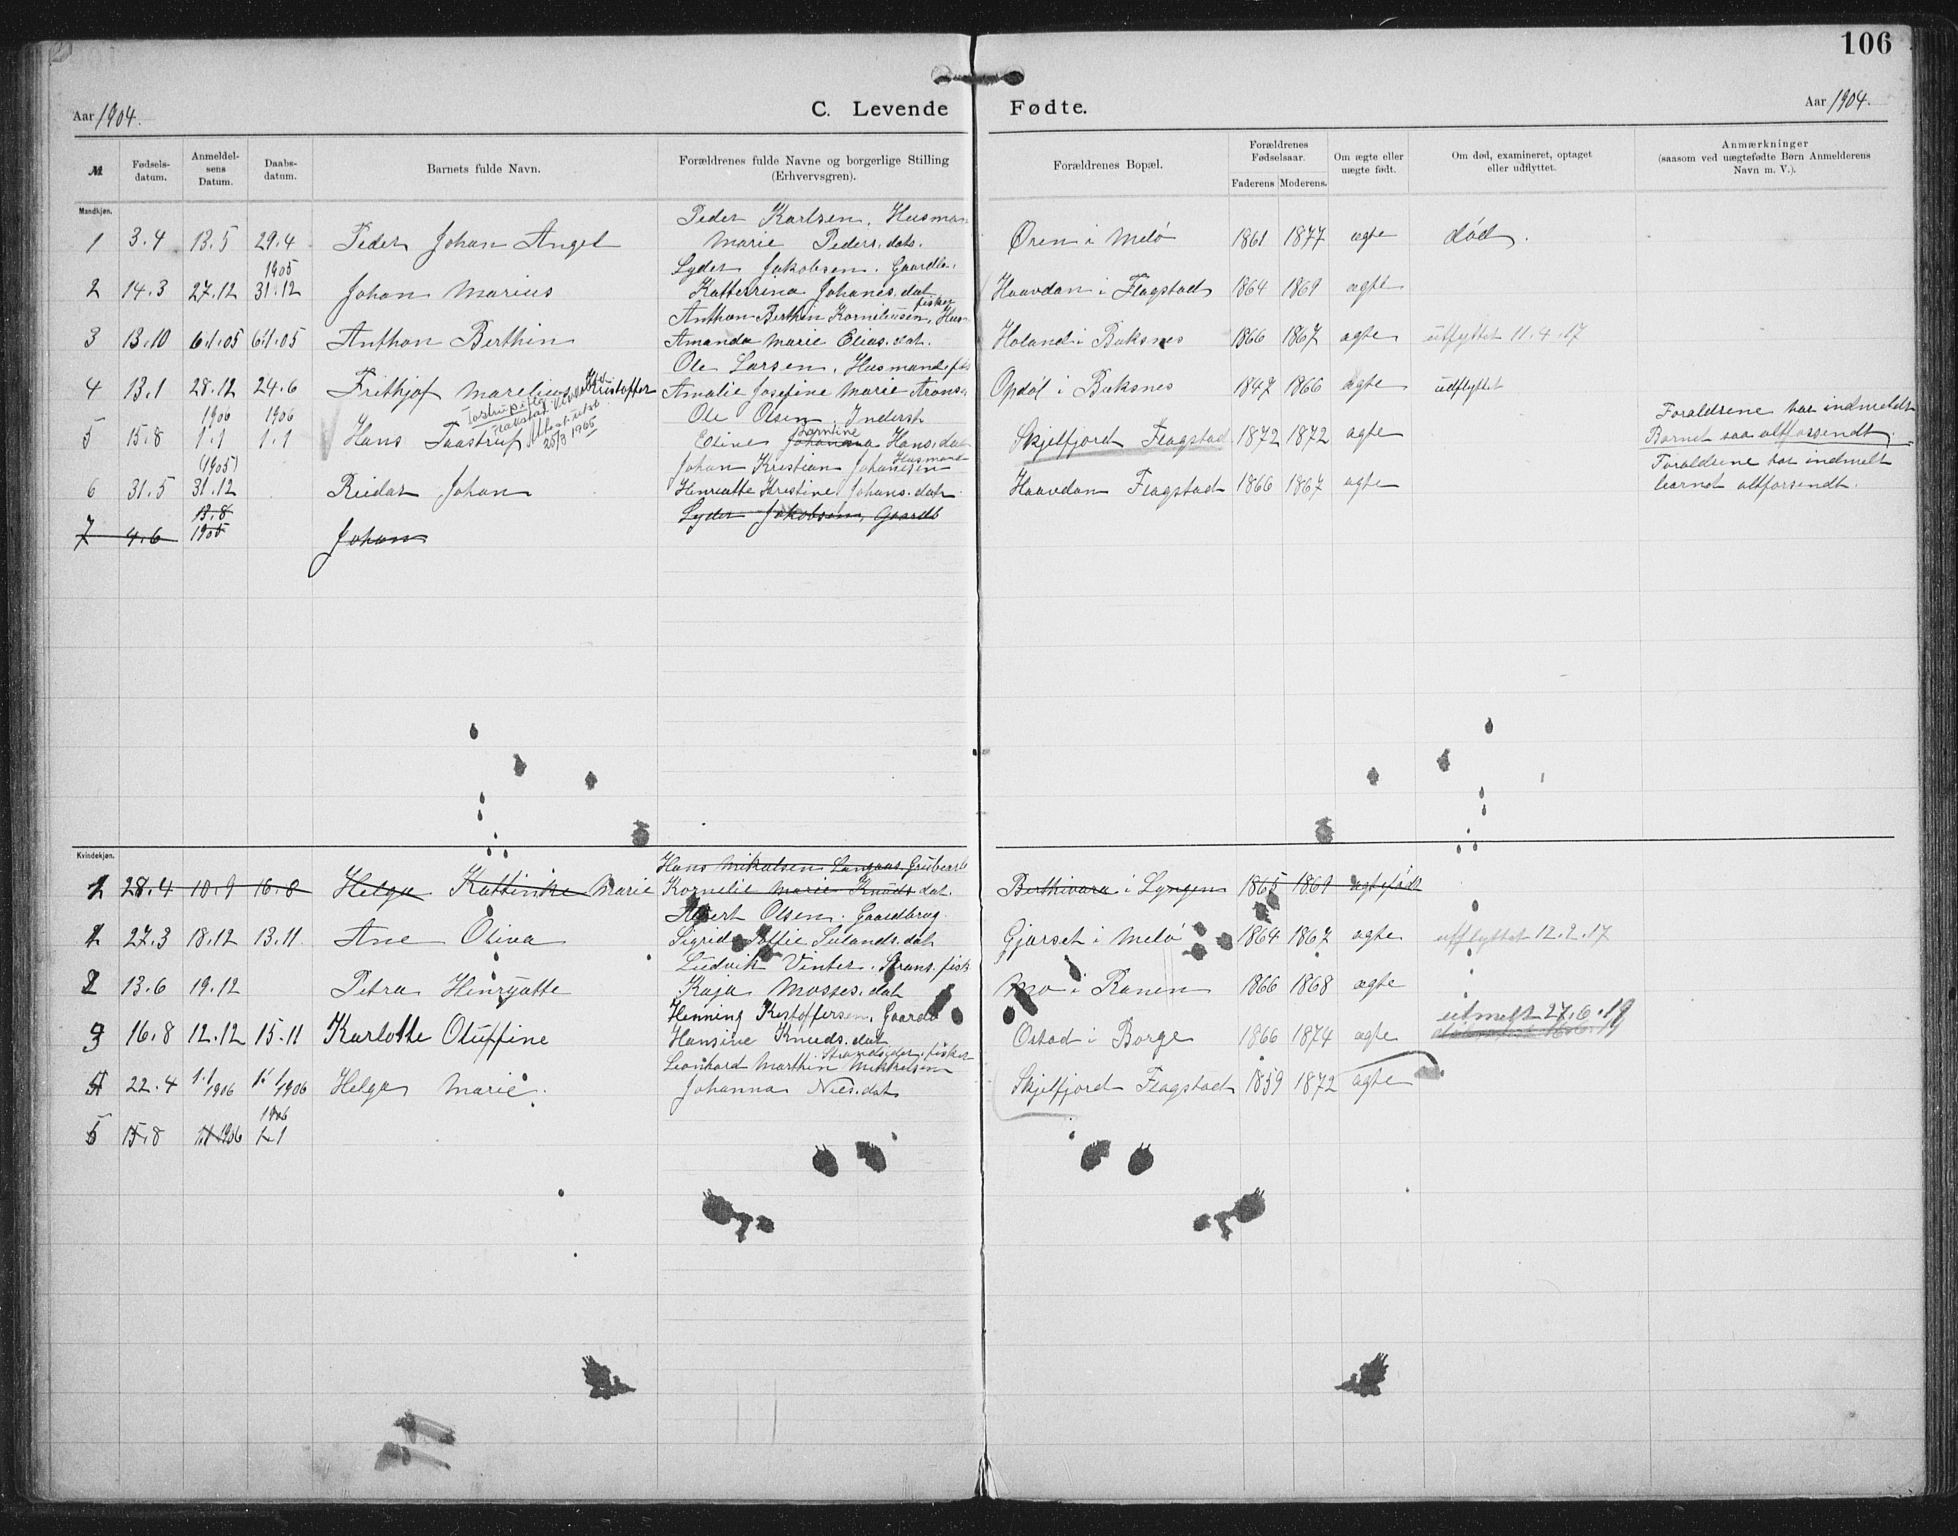 106
Aar 1904.
C. Levende Fødte.
Aar 1904.
№
Fødselsdatum.
Anmeldelsens Datum.
Daabsdatum.
Barnets fulde Navn.
Forældrenes fulde Navne og borgerlige Stilling (Erhvervsgren).
Forældrenes Bopæl.
Forældrenes Fødselsaar.
Faderens
Moderens.
Om ægte eller uægte født.
Om død, examineret, optaget eller udflyttet.
Anmærkninger (saasom ved uægtefødte Børn Anmelderens Navn m. V.).
Mandkjøn.
Peder Karlsen. Husman
1 3.4 13.5 29.4 Peder Johan Angel Marie Peders.dat. Øren i Melø 1861 1877 ægte død.
1905 Lyder Jakobsen. Gaardb.
2 14.3 27.12 31.12 Johan Marius Katterrina Johanes.dat Haavdan i Flagstad 1864 1869 ægte
fisker
Anthon Berthin Korneliusen, Hus
3 13.10 6.1.05 6.1.05 Anthon Berthin Amanda Marie Elias.dat. Holand i Buksnes 1866 1867 ægte utflyttet 11.4.17
Ole Larsen. Husmand
4 13.1 28.12 24.6 Frithjof Marelius Kristoffer Amalie Josefine Marie Opdøl i Buksnes 1847 1866 ægte udflyttet
1906 1906 Attest utst. 25/3 1965 Ole Olsen Inderst
Forældrene har indmeldt
5 15.8 1.1 1.1 Hans Taastrup Eline Johanna Hans.dat Skjelfjord Flagstad 1872 1872 ægte Barnet saa altforsendt.
(1905) Johan Kristian Johansen Husmand
Forældrene har indmelt
6 31.5 31.12 Reidar Johan Henriette Kristine Johans.dat. Haavdan Flagstad 1866 1867 ægte barnet altforsendt.
13.8 Lyder Jakobsen, Gaardb
7 4.6 1905 Johan
Kvindekjøn.
Hans Mikalsen Langaas
1 28.4 10.9 16.8 Helga Kattinke Marie Kornelie Marie Knuts.dat. Berthivara i Lyngen 1865 1869 ægtefødt
Albert Olsen. Gaardbrug.
1 27.3 18.12 13.11. Ane Oliva Sigrid Soffie dat Gjerset i Melø 1864 1867 ægte utflyttet 12.2.17
Ludvik Vinter. Strans.fisk
2 13.6 19.12 Petra Henryatte Kaja Mosses.dat Mo i Ranen 1866 1868 ægte
Henning Kristoffersen, Gaardb
utmelt 27.6.19
3 16.8 12.12 15.11 Karlotte Oluffine Hansine Knuds.dat Ostad i Borge 1866 1874 ægte
Strandsider, fisker
Leonhard Marthin Mikkalsen
4 22.4 1.1/1906 1.1/1906 Helga Marie. Johanna Niels.dat Skjelfjord Flagstad 1859 1872 ægte
1906
5 15.8 1.1 1906 1.1